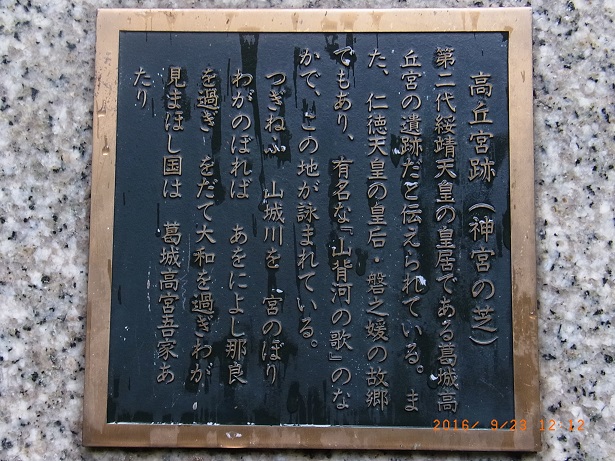 高丘宮跡(神宮の芝)
第二代綏靖天皇の皇居である葛城高
丘宮の遺跡だと伝えられている。ま
た、仁徳天皇の皇后・磐之媛の故郷
でもあり、有名な「山背河の歌」のな
かで、この地が詠まれている。
つぎねふ 山城川を 宮のぼり
わがのぼれば あをによし那良
を過ぎ をだて大和を過ぎわが
見まほし国は 葛城高宮吾家あ
たり
2016/ 9/29 12:12